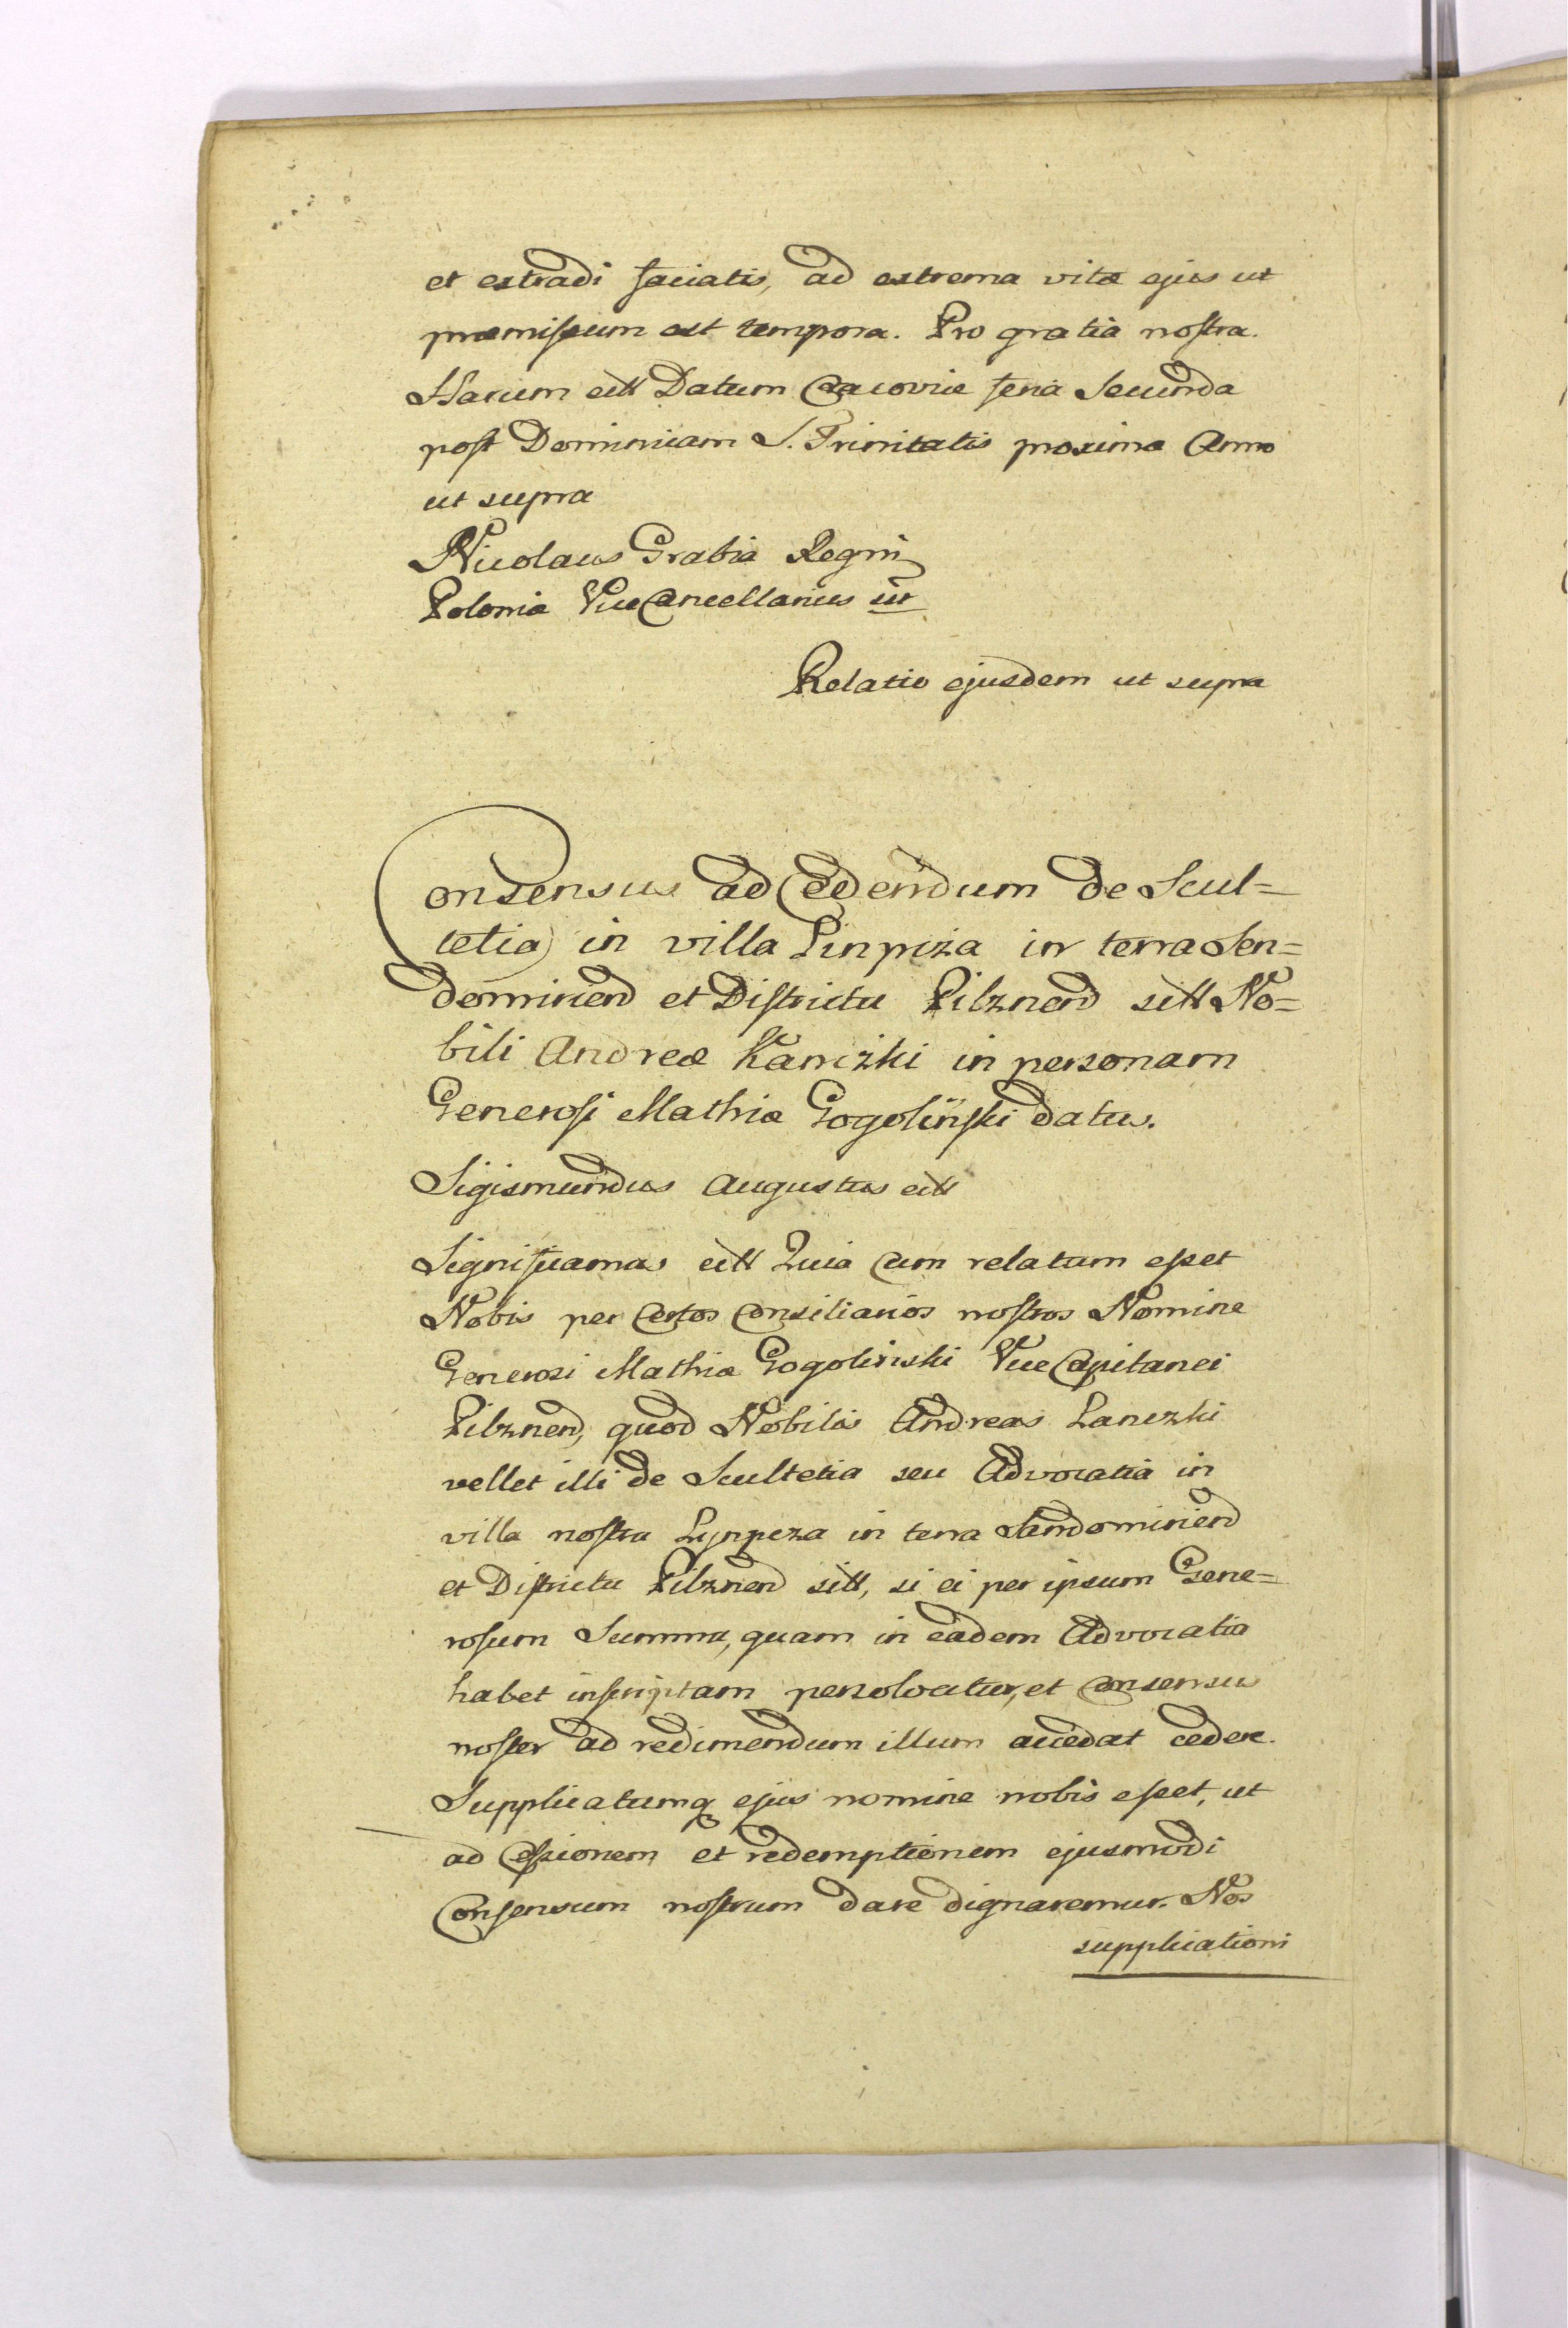 et extradi faciatis, ad extrema vitæ ejus ut
præmissum est tempora. Pro gratia nostra.
Harum ett Datum Cracoviæ feria Secunda
post Dominicam S. Trinitatis proxima Anno
ut supra
Nicolaus Grabia Regni
Poloniæ ViceCancellarius sst
Relatio ejusdem ut supra
Consensus ad Cedendum de Scul=
tetia in villa Linpcza in terra Sen=
domirien et Districtu Pilznen sitt No=
bili Andreæ Kanczki in personam
Generosi Mathiæ Gogolinski datus.
Sigismundus Augustus ett
Significamus ett Quia Cum relatum esset
Nobis per Certos Consiliarios nostros Nomine
Generosi Mathiæ Gogolinski ViceCapitanei
Pilznen, quod Nobilis Andreas Lanczki
vellet illi de Scultetia seu Advocatia in
villa nostra Lynpcza in terra Sandomirien
et Districtu Pilznen sitt, si ei per ipsum Gene=
rosum Summa, quam in eadem Advocatia
habet inscriptam persolvatur, et Consensus
noster ad redimendum illum accedat cedere.
Supplicatumq ejus nomine nobis esset, ut
ad Cessionem et redemptionem ejusmodi
Consensum nostrum dare dignaremur. Nos
supplicationi